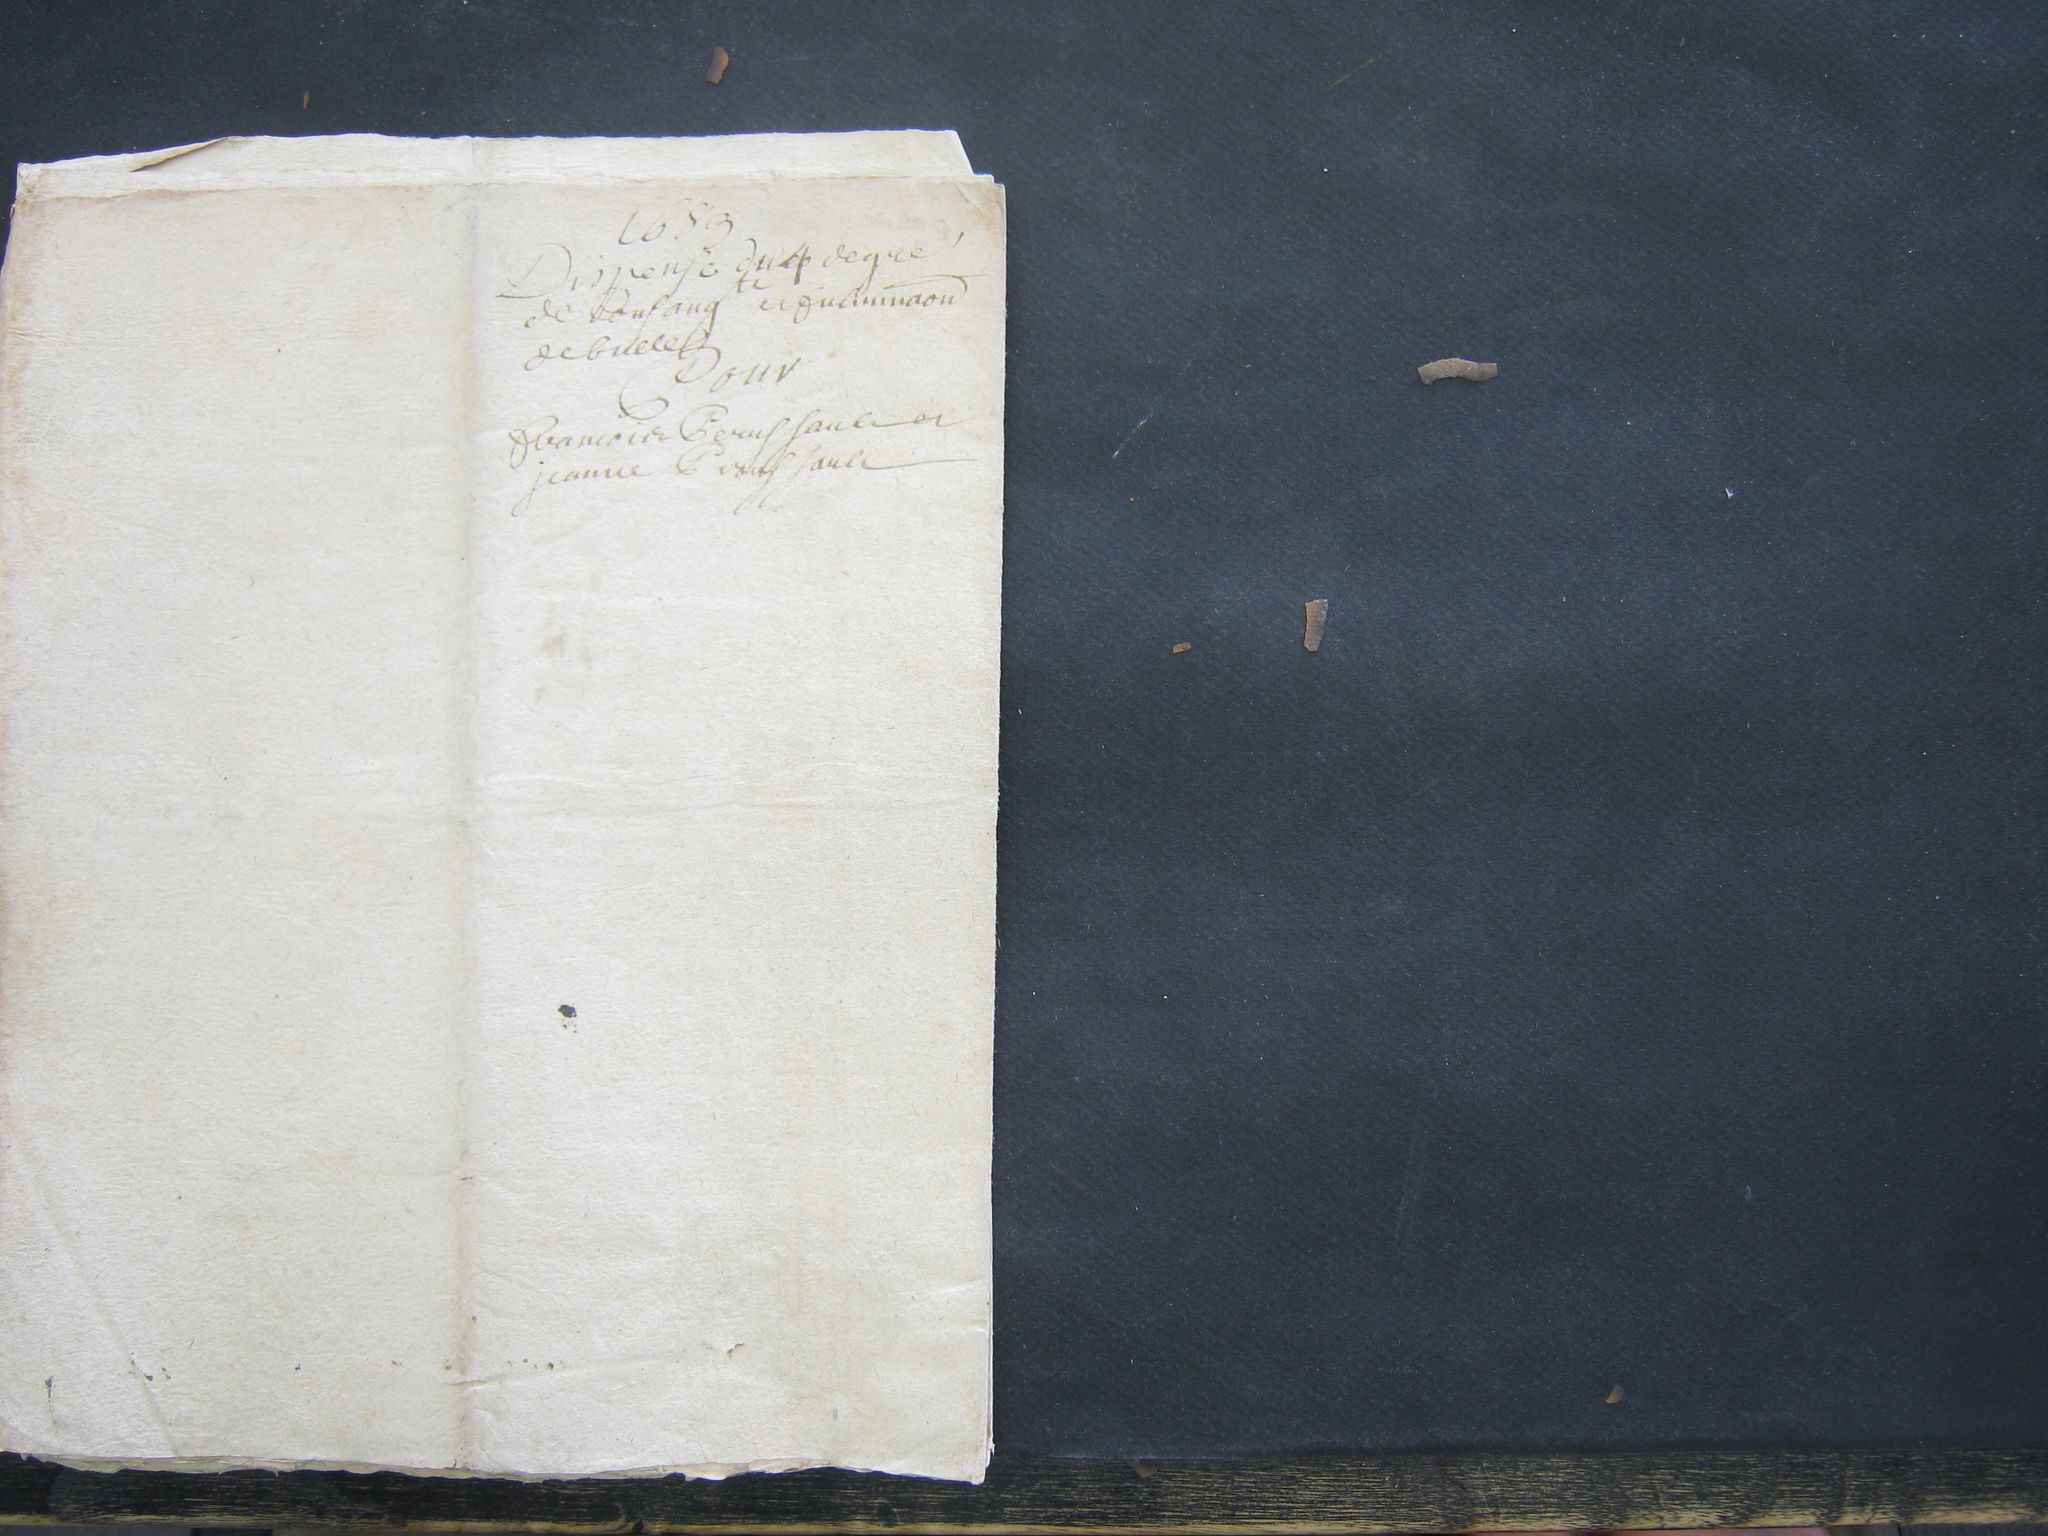 1659
Dispense du 4 degré
de Consang te et fulminaon
de bulles
Pour
françois Perussault et
jeanne Perussault